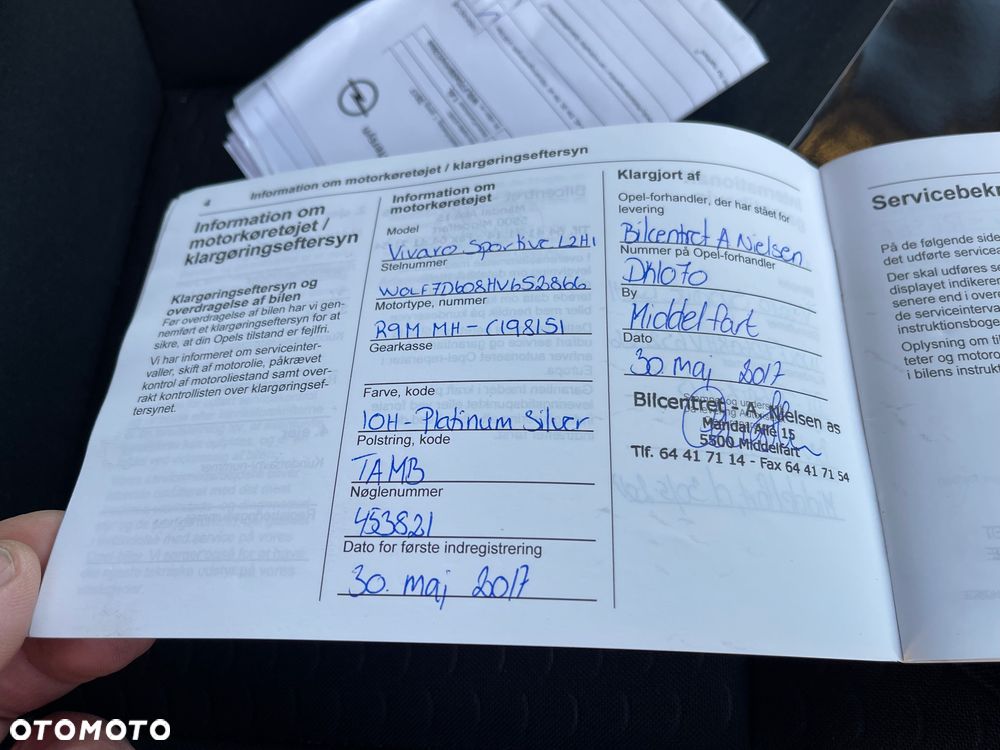 4
Information om motorkøretøjet / klargøringseftersyn
Information om
motorkøretøjet /
klargøringseftersyn
Klargøringseftersyn og
overdragelse af bilen
Før overdragelse af bilen har vi gen-
nemført et klargøringseftersyn for at
sikre, at din Opels tilstand er fejlfri.
Vi har informeret om serviceinter-
valler, skift af motorolie, påkrævet
kontrol af motoroliestand samt over-
rakt kontrollisten over klargøringsef-
tersynet.
Information om
motorkøretøjet
Model
Vivaro Sportive L2H1
Stelnummer
WOLF7D608HV652866
Motortype, nummer
R9M MH - C198151
Gearkasse
Farve, kode
10H - Platinum Silver
Polstring, kode
TAMB
Nøglenummer
453821
Dato for første indregistrering
30. maj 2017
Klargjort af
Opel-forhandler, der har stået for
levering
Bilcentret A Nielsen
Nummer på Opel-forhandler
DK1070
By
Middelfart
Dato
30 maj 2017
Bilcentret - A. Nielsen as
Mandal Allé 15
5500 Middelfart
Tlf. 64 41 71 14 - Fax 64 41 71 54
Servicebekr
På de følgende side
det udførte servicea
Der skal udføres se
displayet indikeren
senere end i overe
de serviceinterva
instruktionsbogen
Oplysning om til
teter og motoro
i bilens instrukt
OTOMOTO